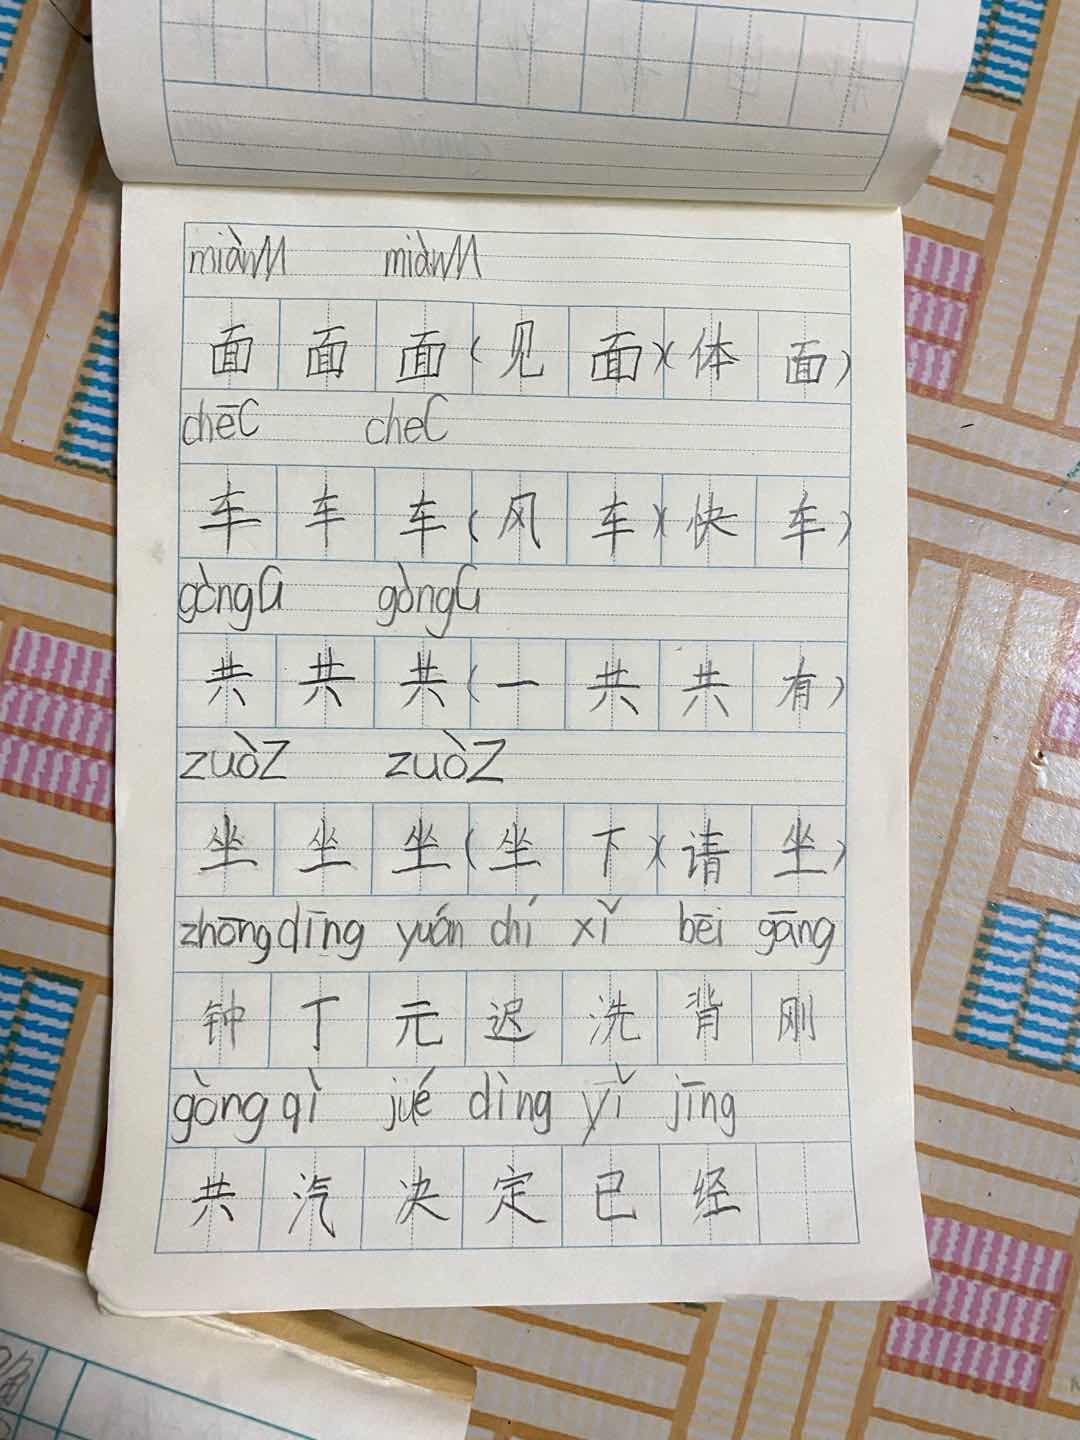 miànM miànM
面 面 面 (见 面)(体 面)
chēC cheC
车 车 车 (风 车)(快 车)
gòngG gòngG
共 共 共 (一 共 共 有)
zuòZ zuòZ
坐 坐 坐 (坐 下)(请 坐)
zhōng dīng yuán chí xǐ bēi gāng
钟 丁 元 迟 洗 背 刚
gòng qì jué dìng yǐ jīng
共 汽 决 定 已 经